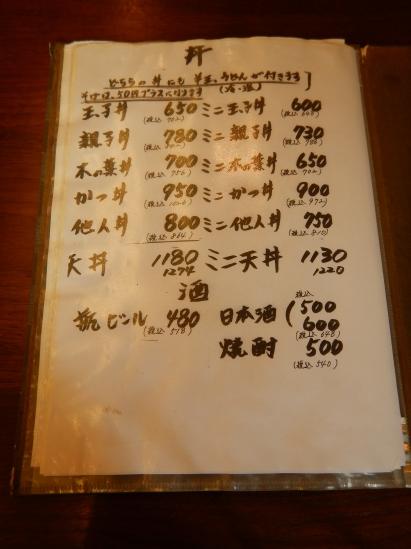 丼
どちらの丼にも半玉うどんが付きます
そばは、50円プラスになります (冷・温)
玉子丼 650 ミニ玉子丼 600
(税込 702) (税込 648)
親子丼 780 ミニ親子丼 730
(税込 842) (税込 788)
木の葉丼 700 ミニ木の葉丼 650
(税込 756) (税込 702)
かつ丼 950 ミニかつ丼 900
(税込 1026) (税込 972)
他人丼 800 ミニ他人丼 750
(税込 864) (税込 810)
天丼 1180 ミニ天丼 1130
1274 1220
酒
税込
瓶ビール 480 日本酒 (500
(税込 518) 600
(税込 648)
焼酎 500
(税込 540)